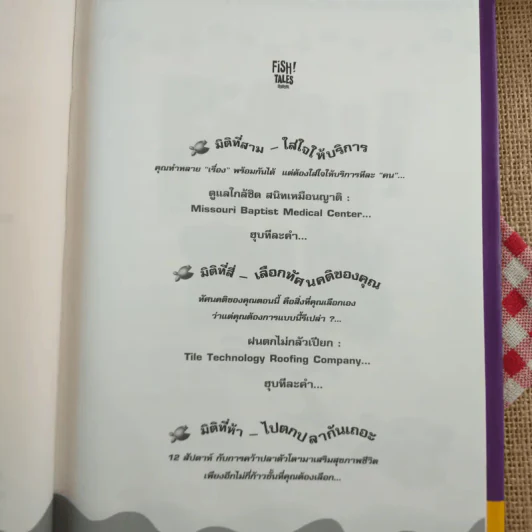 FISH!
TALES
มิติที่สาม – ใส่ใจให้บริการ
คุณทำหลาย "เรื่อง" พร้อมกันได้ แต่ต้องใส่ใจให้บริการทีละ "คน"...
ดูแลใกล้ชิด สนิทเหมือนญาติ :
Missouri Baptist Medical Center...
ฮุบทีละคำ...
มิติที่สี่ – เลือกทัศนคติของคุณ
ทัศนคติของคุณตอนนี้ คือสิ่งที่คุณเลือกเอง
ว่าแต่คุณต้องการแบบนี้รึเปล่า ?...
ฝนตกไม่กลัวเปียก :
Tile Technology Roofing Company...
ฮุบทีละคำ...
มิติที่ห้า – ไปตกปลากันเถอะ
12 สัปดาห์ กับการคว้าปลาตัวโตมาเสริมสุขภาพชีวิต
เพียงอีกไม่กี่ก้าวขั้นที่คุณต้องเลือก...